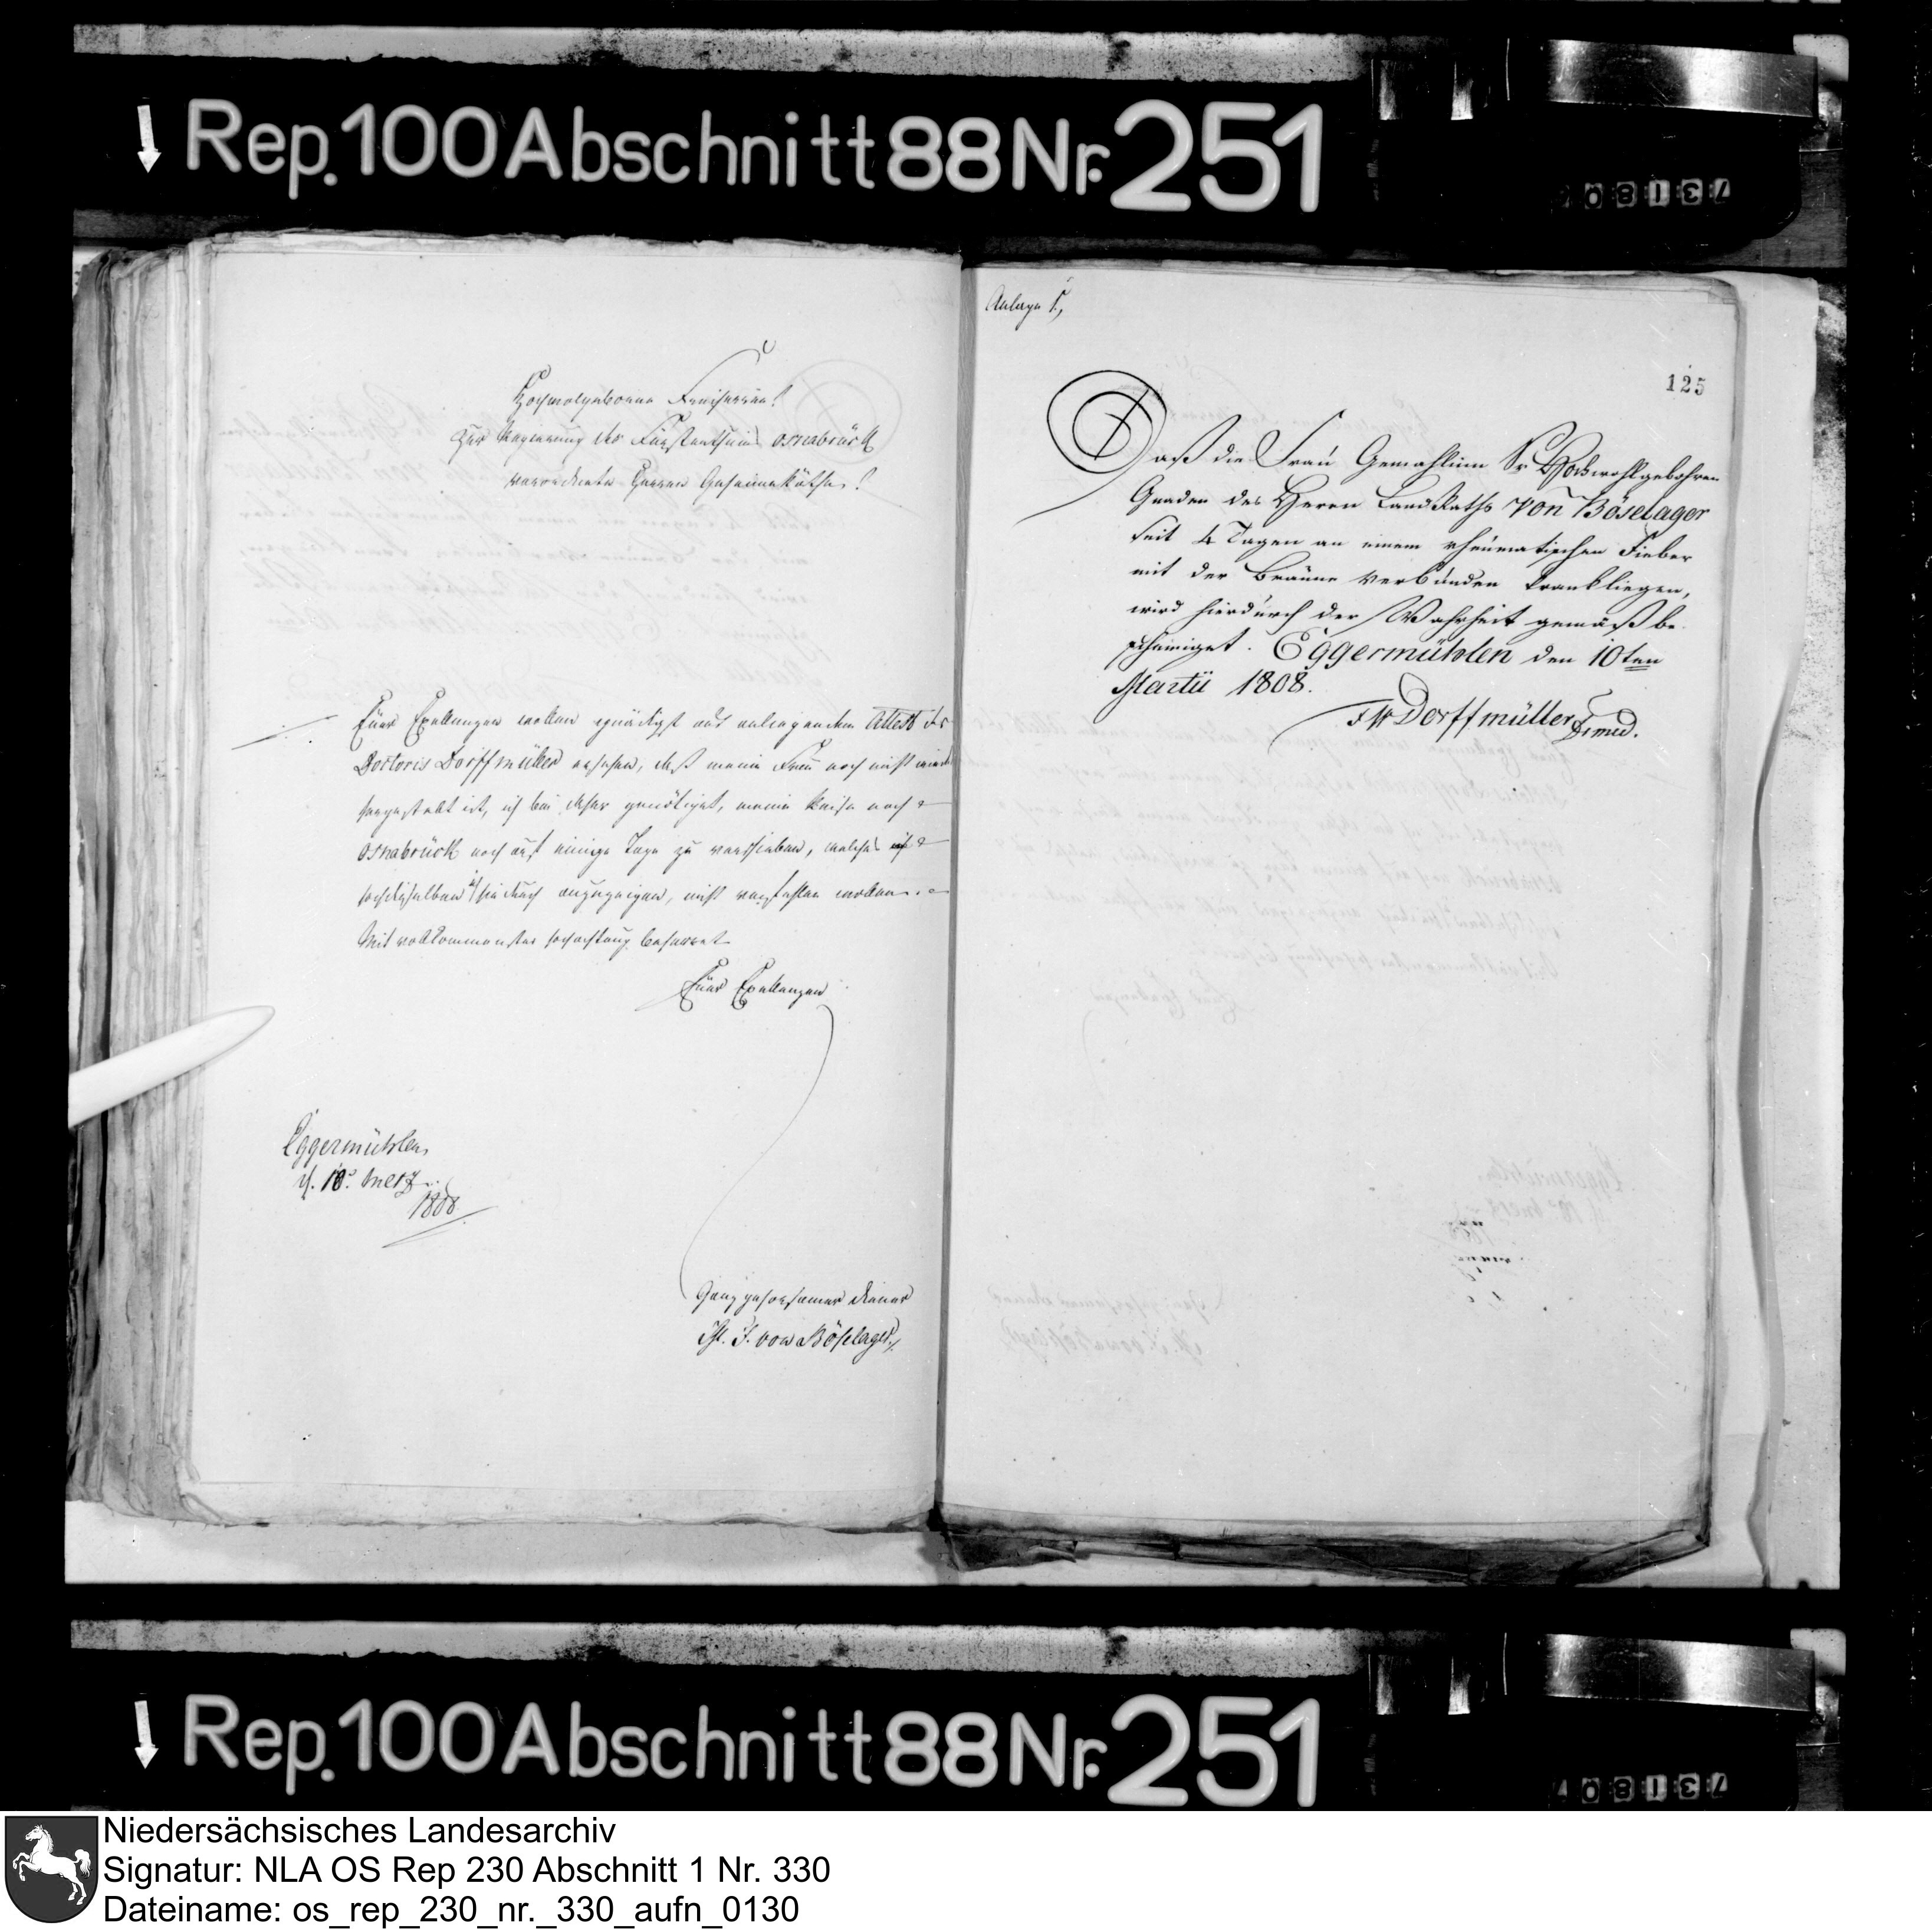 Rep. 100 Abschnitt 88 Nr. 251
731807
Hochwolgeborne Freiherren!
Zur Regierung des Fürstenthums Osnabrück
verordnete Herren Geheimeräthe!
Euer Exellenzen wollen gnädigst aus anliegendem Attest des
Doctoris Dorffmüller ersehen, daß meine Frau noch nicht wieder
hergestelt ist, ich bin daher genötiget, meine Reise nach
Osnabrück noch auf einige Tage zu verschieben, welches
hochdenselben ich hiedurch anzuzeigen, nicht verfehlen wollen.
Mit vollkommenster Hochachtung beharret
Euer Exellenzen
Eggermühlen
d. 10. Merz
1808
Ganz gehorsamer Diener
von Böselager
Anlage 1.
125
Daß die Frau Gemahlinn Sr Hochwohlgebohren
Gnaden des Herrn LandRaths von Böselager
seit 4 Tagen an einem rheumatischen Fieber
mit der Bräune verbunden krankliegen,
wird hierdurch der Wahrheit gemäß be-
scheiniget. Eggermühlen den 10ten
Martii 1808.
FW Dorffmüller Dr med.
Rep. 100 Abschnitt 88 Nr. 251
731807
Niedersächsisches Landesarchiv
Signatur: NLA OS Rep 230 Abschnitt 1 Nr. 330
Dateiname: os_rep_230_nr._330_aufn_0130